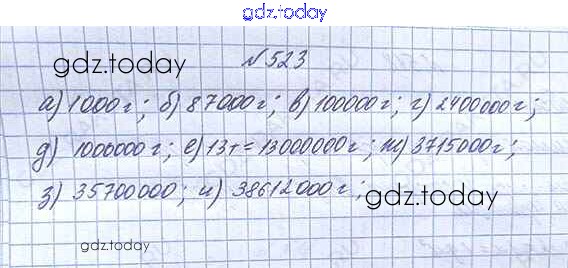 gdz.today
№523
gdz.today
а) 1000г; б) 87000г; в) 100000г; г) 2400000г;
д) 1000000г; е) 13т = 13000000г; ж) 3715000г;
з) 35700000; и) 38612000г;
gdz.today
gdz.today